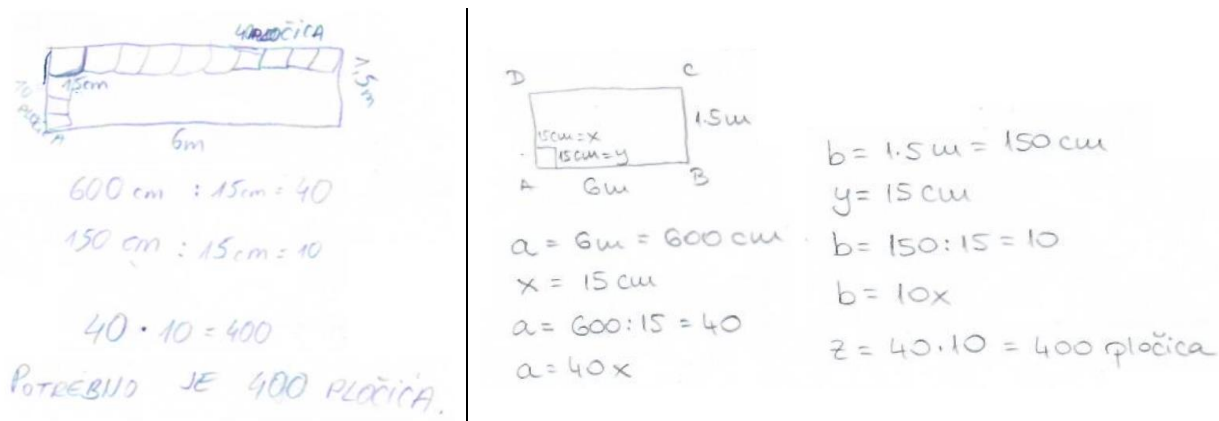 40 PLOČICA
15cm
1,5m
10 PLOČICA
6m
600 cm : 15cm = 40
150 cm : 15cm = 10
40 · 10 = 400
POTREBNO JE 400 PLOČICA.
D
C
15cm = x
15cm = y
1.5m
A
6m
B
a = 6m = 600 cm
x = 15 cm
a = 600:15 = 40
a = 40x
b = 1.5m = 150 cm
y = 15 cm
b = 150:15 = 10
b = 10x
z = 40·10 = 400 pločica